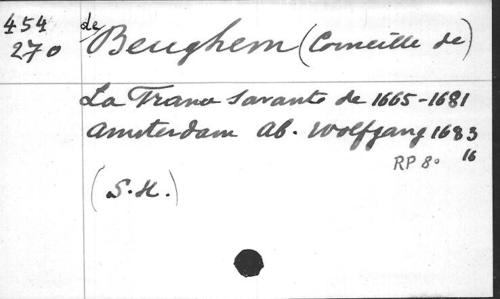 454
270
de Beughem (Corneille de)
La France Savante de 1665-1681
Amsterdam Ab. Wolfgang 1683
16
RP 8º
(S.H.)